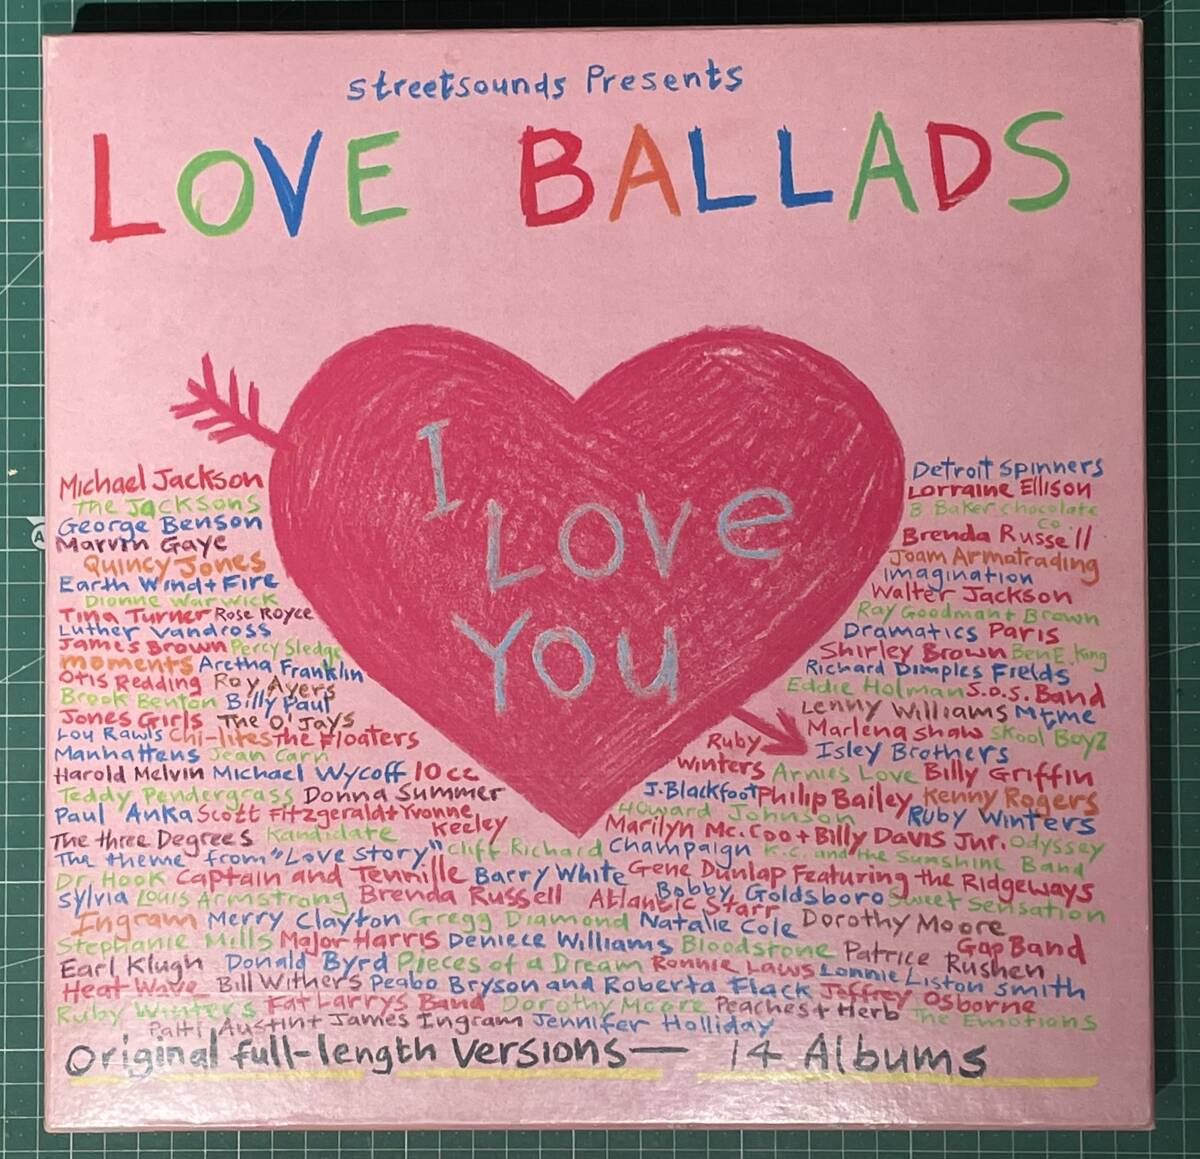 streetsounds Presents
LOVE BALLADS
I
LOVe
YOu
Michael Jackson
the Jacksons
George Benson
Marvin Gaye
Quincy Jones
Earth Wind + Fire
Dionne Warwick
Tina Turner Rose Royce
Luther Vandross
James Brown Percy Sledge
moments Aretha Franklin
Otis Redding Roy Ayers
Brook Benton Billy Paul
Jones Girls The O'Jays
Lou Rawls Chi-lites The Floaters
Manhattens Jean Carn
Harold Melvin Michael Wycoff 10cc
Teddy Pendergrass Donna Summer
Paul Anka Scott Fitzgerald + Yvonne
Keeley
The three Degrees Kandidate
Detroit Spinners
Lorraine Ellison
B Baker Chocolate
Co.
Brenda Russell
Joam Armatrading
Imagination
Walter Jackson
Ray Goodman + Brown
Dramatics Paris
Shirley Brown Ben E. King
Richard Dimples Fields
Eddie Holman S.O.S. Band
Lenny Williams Mtme
Marlena Shaw Skool Boyz
Ruby
Winters
Isley Brothers
Arnies Love Billy Griffin
J. Blackfoot Philip Bailey Kenny Rogers
Howard Johnson Ruby Winters
Marilyn Mc.Coo + Billy Davis Jnr. Odyssey
The theme from "Love story" Cliff Richard Champaign K.C. and the Sunshine Band
Dr Hook Captain and Tennille Barry White Gene Dunlap Featuring the Ridgeways
Sylvia Louis Armstrong Brenda Russell Atlantic Starr Bobby Goldsboro Sweet Sensation
Ingram Merry Clayton Gregg Diamond Natalie Cole Dorothy Moore
Stephanie Mills Major Harris Deniece Williams Bloodstone Patrice Rushen Gap Band
Earl Klugh Donald Byrd Pieces of a Dream Ronnie Laws Lonnie Liston Smith
Heat Wave Bill Withers Peabo Bryson and Roberta Flack Jeffrey Osborne
Ruby Winters Fat Larrys Band Dorothy Moore Peaches + Herb The Emotions
Patti Austin + James Ingram Jennifer Holliday
Original full-length Versions — 14 Albums